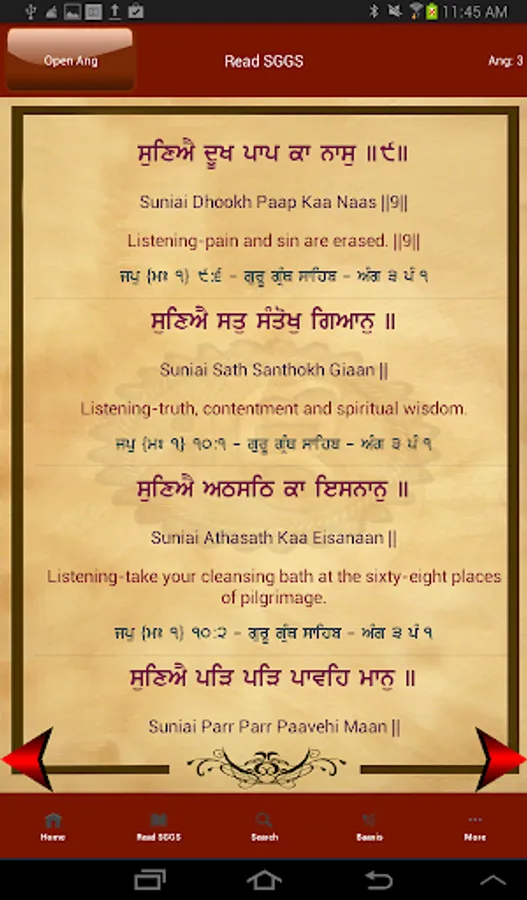 11:45 AM
Open Ang
Read SGGS
Ang: 3
ਸੁਣਿਐ ਦੂਖ ਪਾਪ ਕਾ ਨਾਸੁ ॥੯॥
Suniai Dhookh Paap Kaa Naas ||9||
Listening-pain and sin are erased. ||9||
ਜਪੁ (ਮਃ ੧) ੯:੬ - ਗੁਰੂ ਗ੍ਰੰਥ ਸਾਹਿਬ - ਅੰਗ ੩ ਪੰ ੧
ਸੁਣਿਐ ਸਤੁ ਸੰਤੋਖੁ ਗਿਆਨੁ ॥
Suniai Sath Santhokh Giaan ||
Listening-truth, contentment and spiritual wisdom.
ਜਪੁ (ਮਃ ੧) ੧੦:੧ - ਗੁਰੂ ਗ੍ਰੰਥ ਸਾਹਿਬ - ਅੰਗ ੩ ਪੰ ੧
ਸੁਣਿਐ ਅਠਸਠਿ ਕਾ ਇਸਨਾਨੁ ॥
Suniai Athasath Kaa Eisanaan ||
Listening-take your cleansing bath at the sixty-eight places
of pilgrimage.
ਜਪੁ (ਮਃ ੧) ੧੦:੨ - ਗੁਰੂ ਗ੍ਰੰਥ ਸਾਹਿਬ - ਅੰਗ ੩ ਪੰ ੧
ਸੁਣਿਐ ਪੜਿ ਪੜਿ ਪਾਵਹਿ ਮਾਨੁ ॥
Suniai Parr Parr Paavehi Maan ||
Home
Read SGGS
Search
Baanis
More